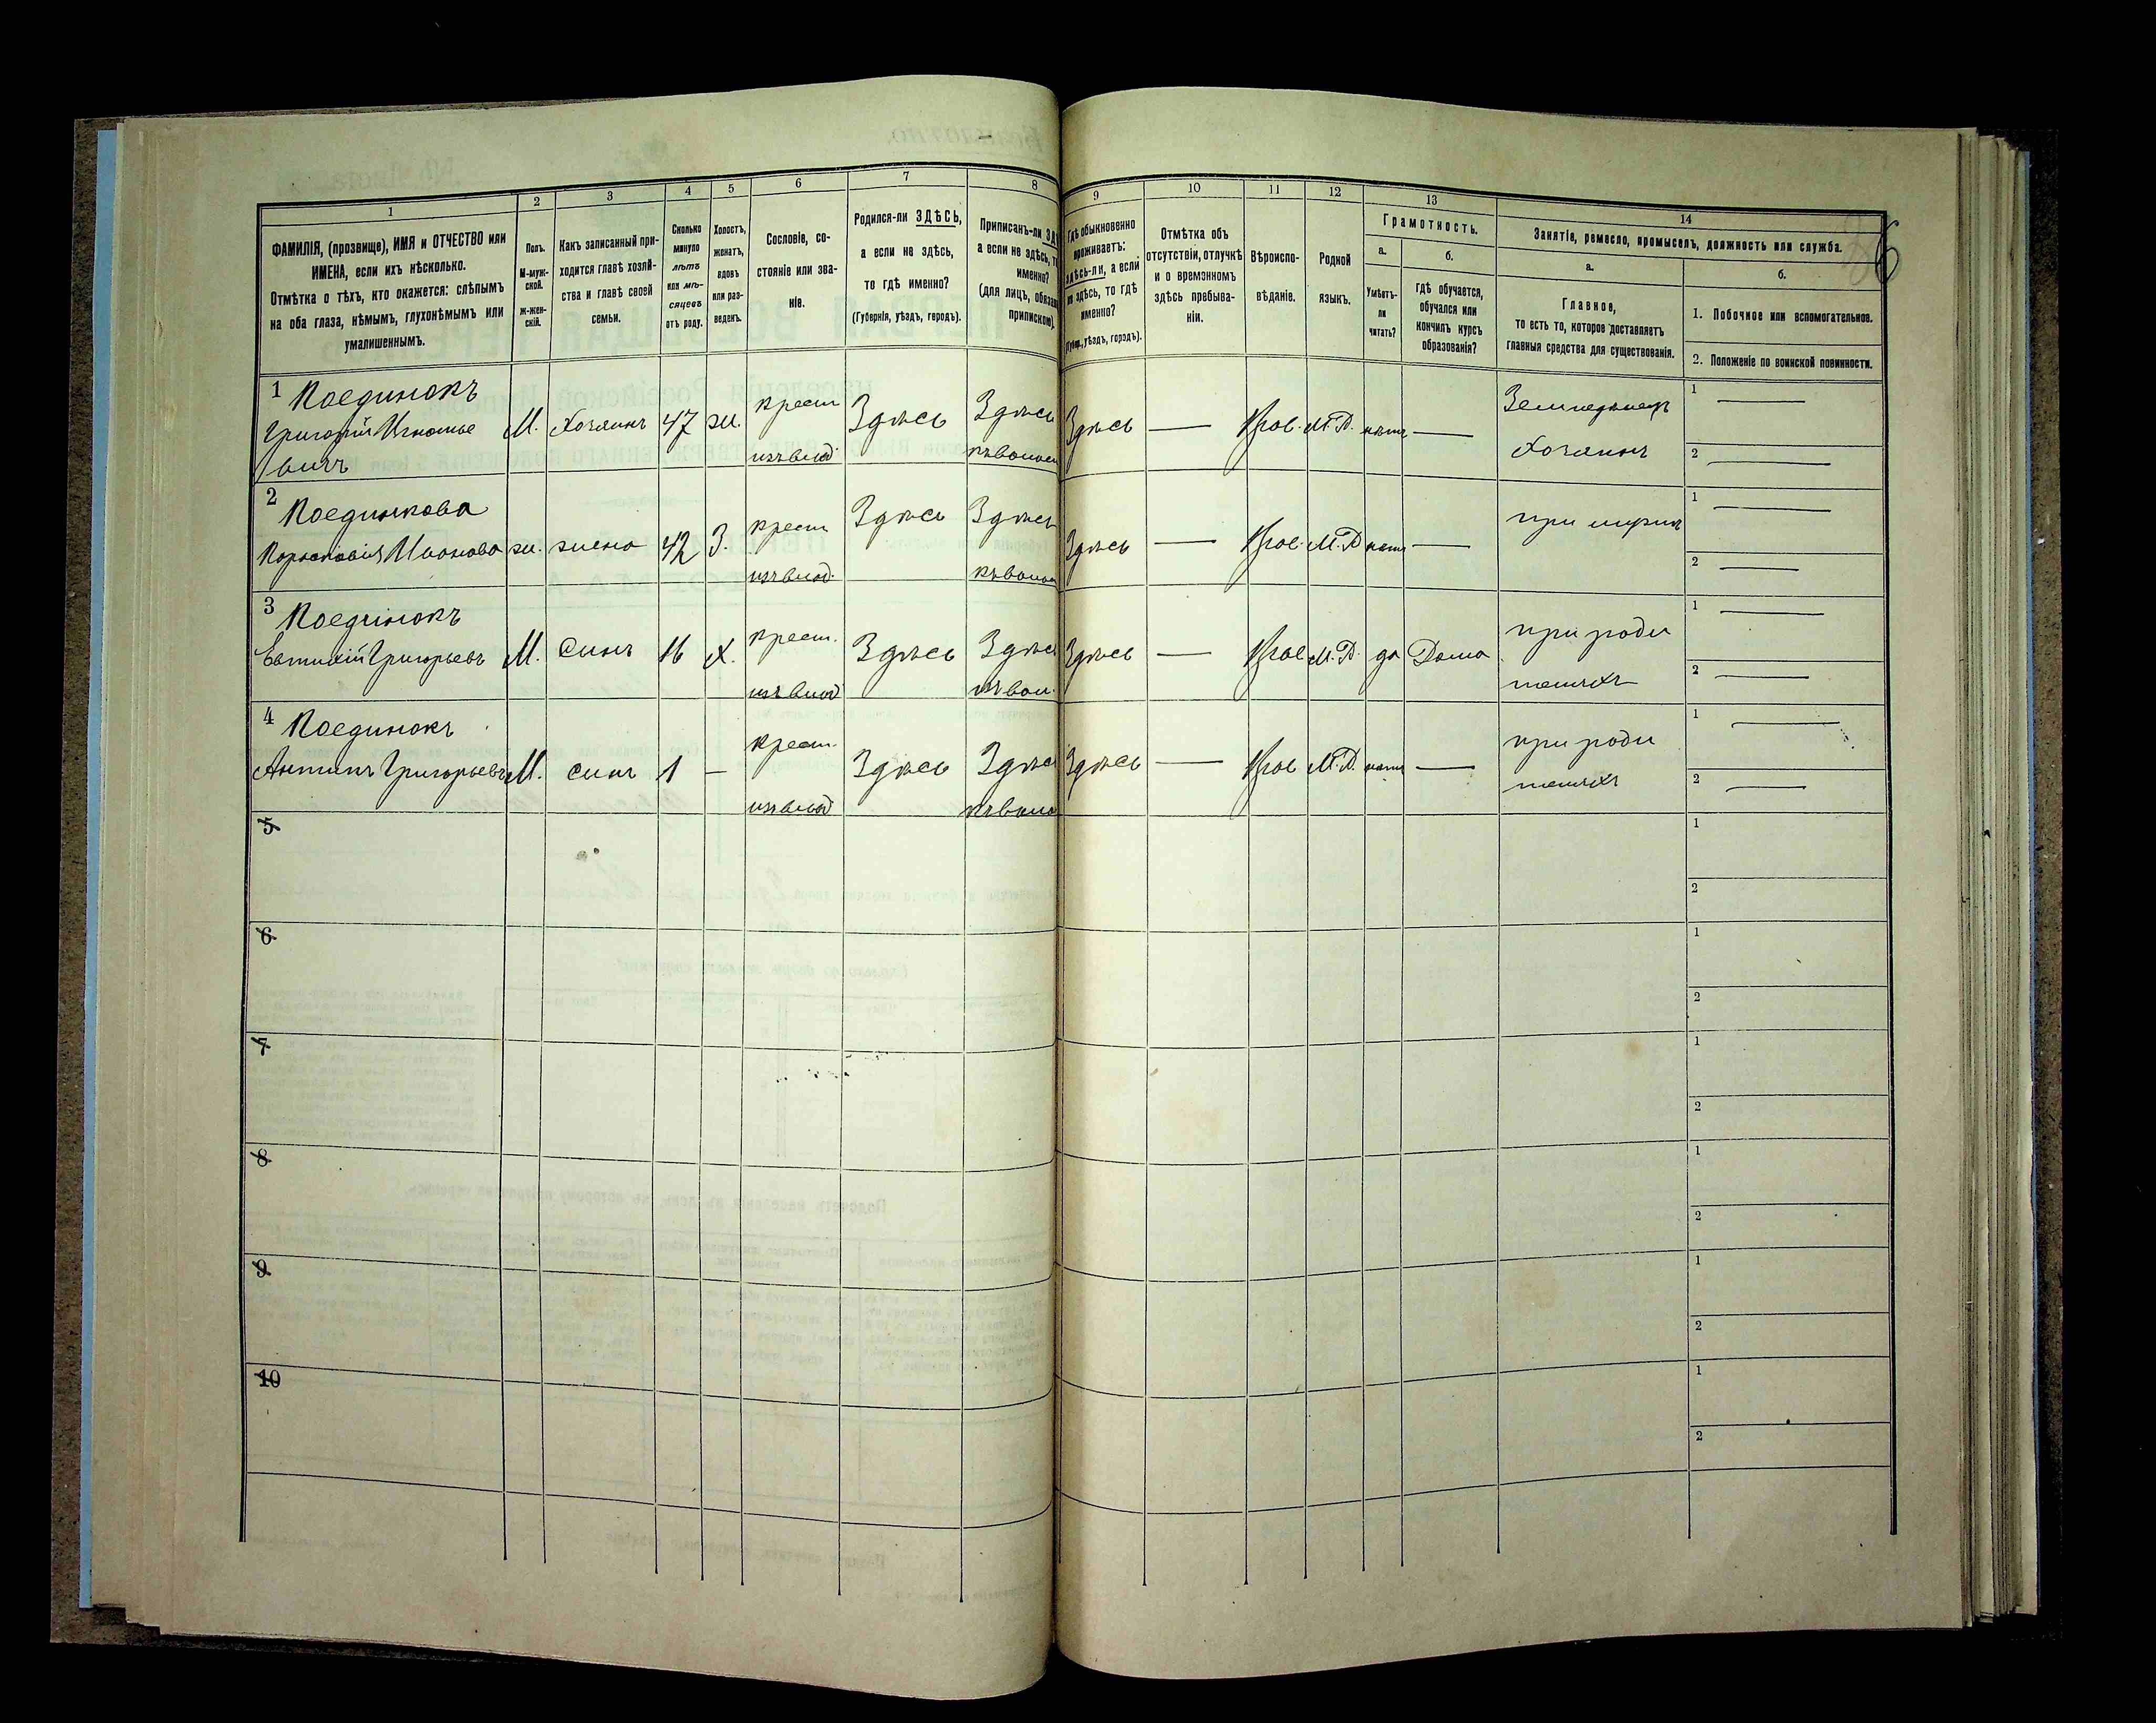 1
2
3
4
5
6
7
8
9
10
11
12
13
14
ФАМИЛІЯ, (прозвище), ИМЯ и ОТЧЕСТВО или
ИМЕНА, если ихъ нѣсколько.
Отмѣтка о тѣхъ, кто окажется: слѣпымъ
на оба глаза, нѣмымъ, глухонѣмымъ или
умалишеннымъ.
Полъ.
М-муж-
ской.
Ж-жен-
скій.
Какъ записанный при-
ходится главѣ хозяй-
ства и главѣ своей
семьи.
Сколько
минуло
лѣтъ
или мѣ-
сяцевъ
отъ роду.
Холостъ,
женатъ,
вдовъ
или раз-
веденъ.
Сословіе, со-
стояніе или зва-
ніе.
Родился-ли ЗДѢСЬ,
а если не здѣсь,
то гдѣ именно?
(Губернія, уѣздъ, городъ).
Приписанъ-ли
а если не здѣсь,
именно?
(для лицъ,
припискою).
Гдѣ обыкновенно
проживаетъ:
здѣсь-ли, а если
не здѣсь, то гдѣ
именно?
(Губер., уѣздъ, городъ).
Отмѣтка объ
отсутствіи, отлучкѣ
и о временномъ
здѣсь пребыва-
ніи.
Вѣроиспо-
вѣданіе.
Родной
языкъ.
Грамотность.
а.
б.
Умѣетъ-
ли
читать?
гдѣ обучается,
обучался или
кончилъ курсъ
образованія?
Занятіе, ремесло, промыселъ, должность или служба.
а.
б.
Главное,
то есть то, которое доставляетъ
главныя средства для существованія.
1. Побочное или вспомогательное.
2. Положеніе по воинской повинности.
1 Поединокъ
Григорій Игнатье
вичъ
М. Хозяинъ 47 ж. крест. Здѣсь Здѣсь Здѣсь — Прав. М.Р. нѣтъ —
Земледѣлецъ
Хозяинъ
1 —
2 —
2 Поединкова
ж. жена 42 З. крест. Здѣсь Здѣсь Здѣсь — Прав. М.Р. нѣтъ —
при мужѣ
1 —
2 —
3 Поединокъ
Евтихій Григорьевъ М. Сынъ 16 Х. крест. Здѣсь Здѣсь Здѣсь — Прав. М.Р. да Дома
при роди
теляхъ
1 —
2 —
4 Поединокъ
Антипъ Григорьевъ М. сынъ 1 — крест. Здѣсь Здѣсь Здѣсь — Прав. М.Р. нѣтъ —
при роди
теляхъ
1 —
2 —
5
1
2
6
1
2
7
1
2
8
1
2
9
1
2
10
1
2